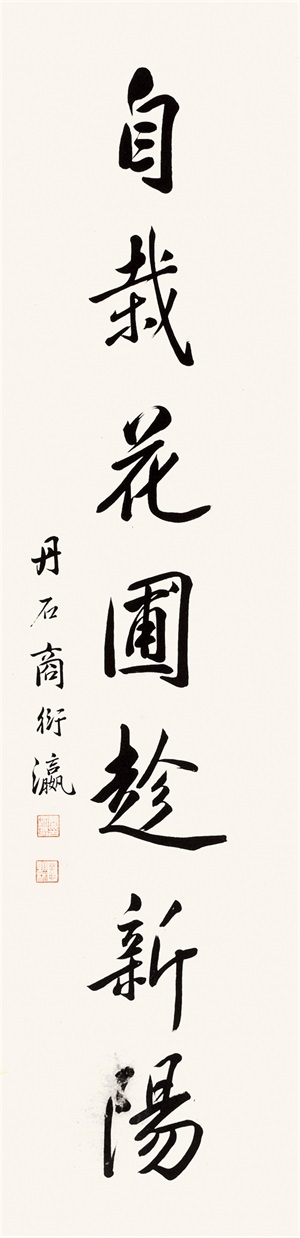 自栽花圃趁新陽
丹石商衍瀛